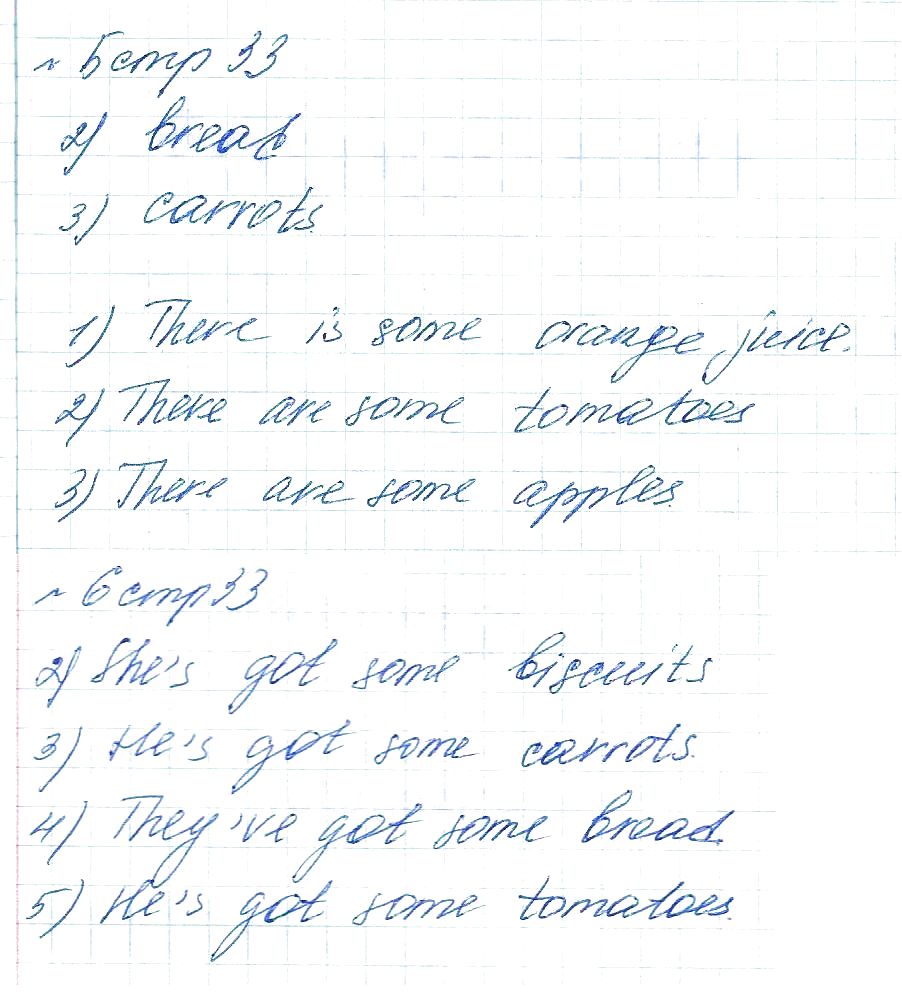 ~ 5 стр 33
2) bread
3) carrots.
1) There is some orange juice.
2) There are some tomatoes
3) There are some apples.
~ 6 стр 33
2) She's got some biscuits
3) He's got some carrots.
4) They've got some bread.
5) He's got some tomatoes.